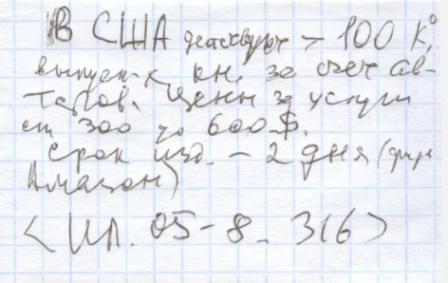 В США действуют > 100 К°
выпуск-х кн. за счет ав-
торов. Цены за услуги
от 300 до 600 $.
Срок изд. – 2 дня (фирма
Амазон)
<ИЛ. 05-8. 316>